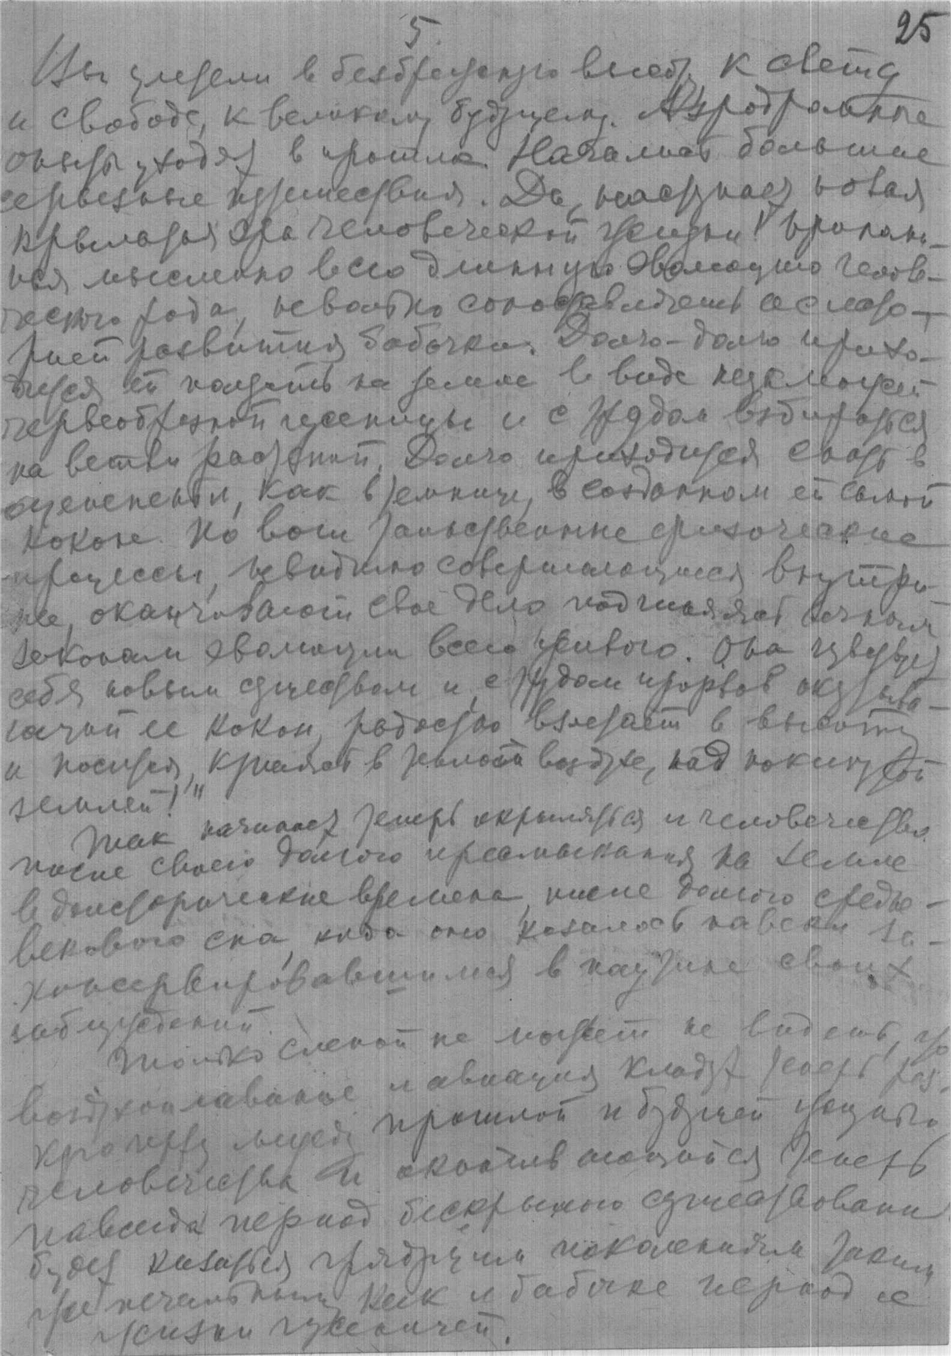 5.
25
Мы улетели в безбрежную высь, к свету
и свободе, к великому будущему. Аэродромные
опыты уходят в прошлое. Начались большие
серьезные путешествия. Да, наступает новая
крылатая эра человеческой жизни! Вспоми-
ная мысленно всю длинную эволюцию челове-
ческого рода, невольно сопоставляешь ее с исто-
рией развития бабочки. Долго-долго прихо-
дится ей ползать на земле в виде
червеобразной гусеницы и с трудом взбираться
на ветви растений. Долго приходится спать в
оцепенении, как в темнице, в созданном ей самой
коконе. Но вот таинственные физические
процессы, невидимо совершающиеся внутри
нее, оканчивают свое дело, подчиняясь вечным
законам эволюции всего живого. Она чувствует
себя новым существом и, с трудом прорвав окутыва-
ющий ее кокон, радостно взлетает в высоту
и носится, купаясь в теплом воздухе, над покинутой
землей!"
Так начинает теперь окрыляться и человечество
после своего долгого пресмыкания на земле
в доисторические времена, после долгого средне-
векового сна, когда оно казалось навеки за-
консервировавшимся в паутине своих
заблуждений.
Только слепой не может не видеть, что
воздухоплавание и авиация кладут теперь
между прошлой и будущей жизнью
человечества и оканчивающийся теперь
навсегда период бескрылого существования
будет казаться грядущим поколениям таким
же печальным, как и бабочке период ее
жизни гусеницей.